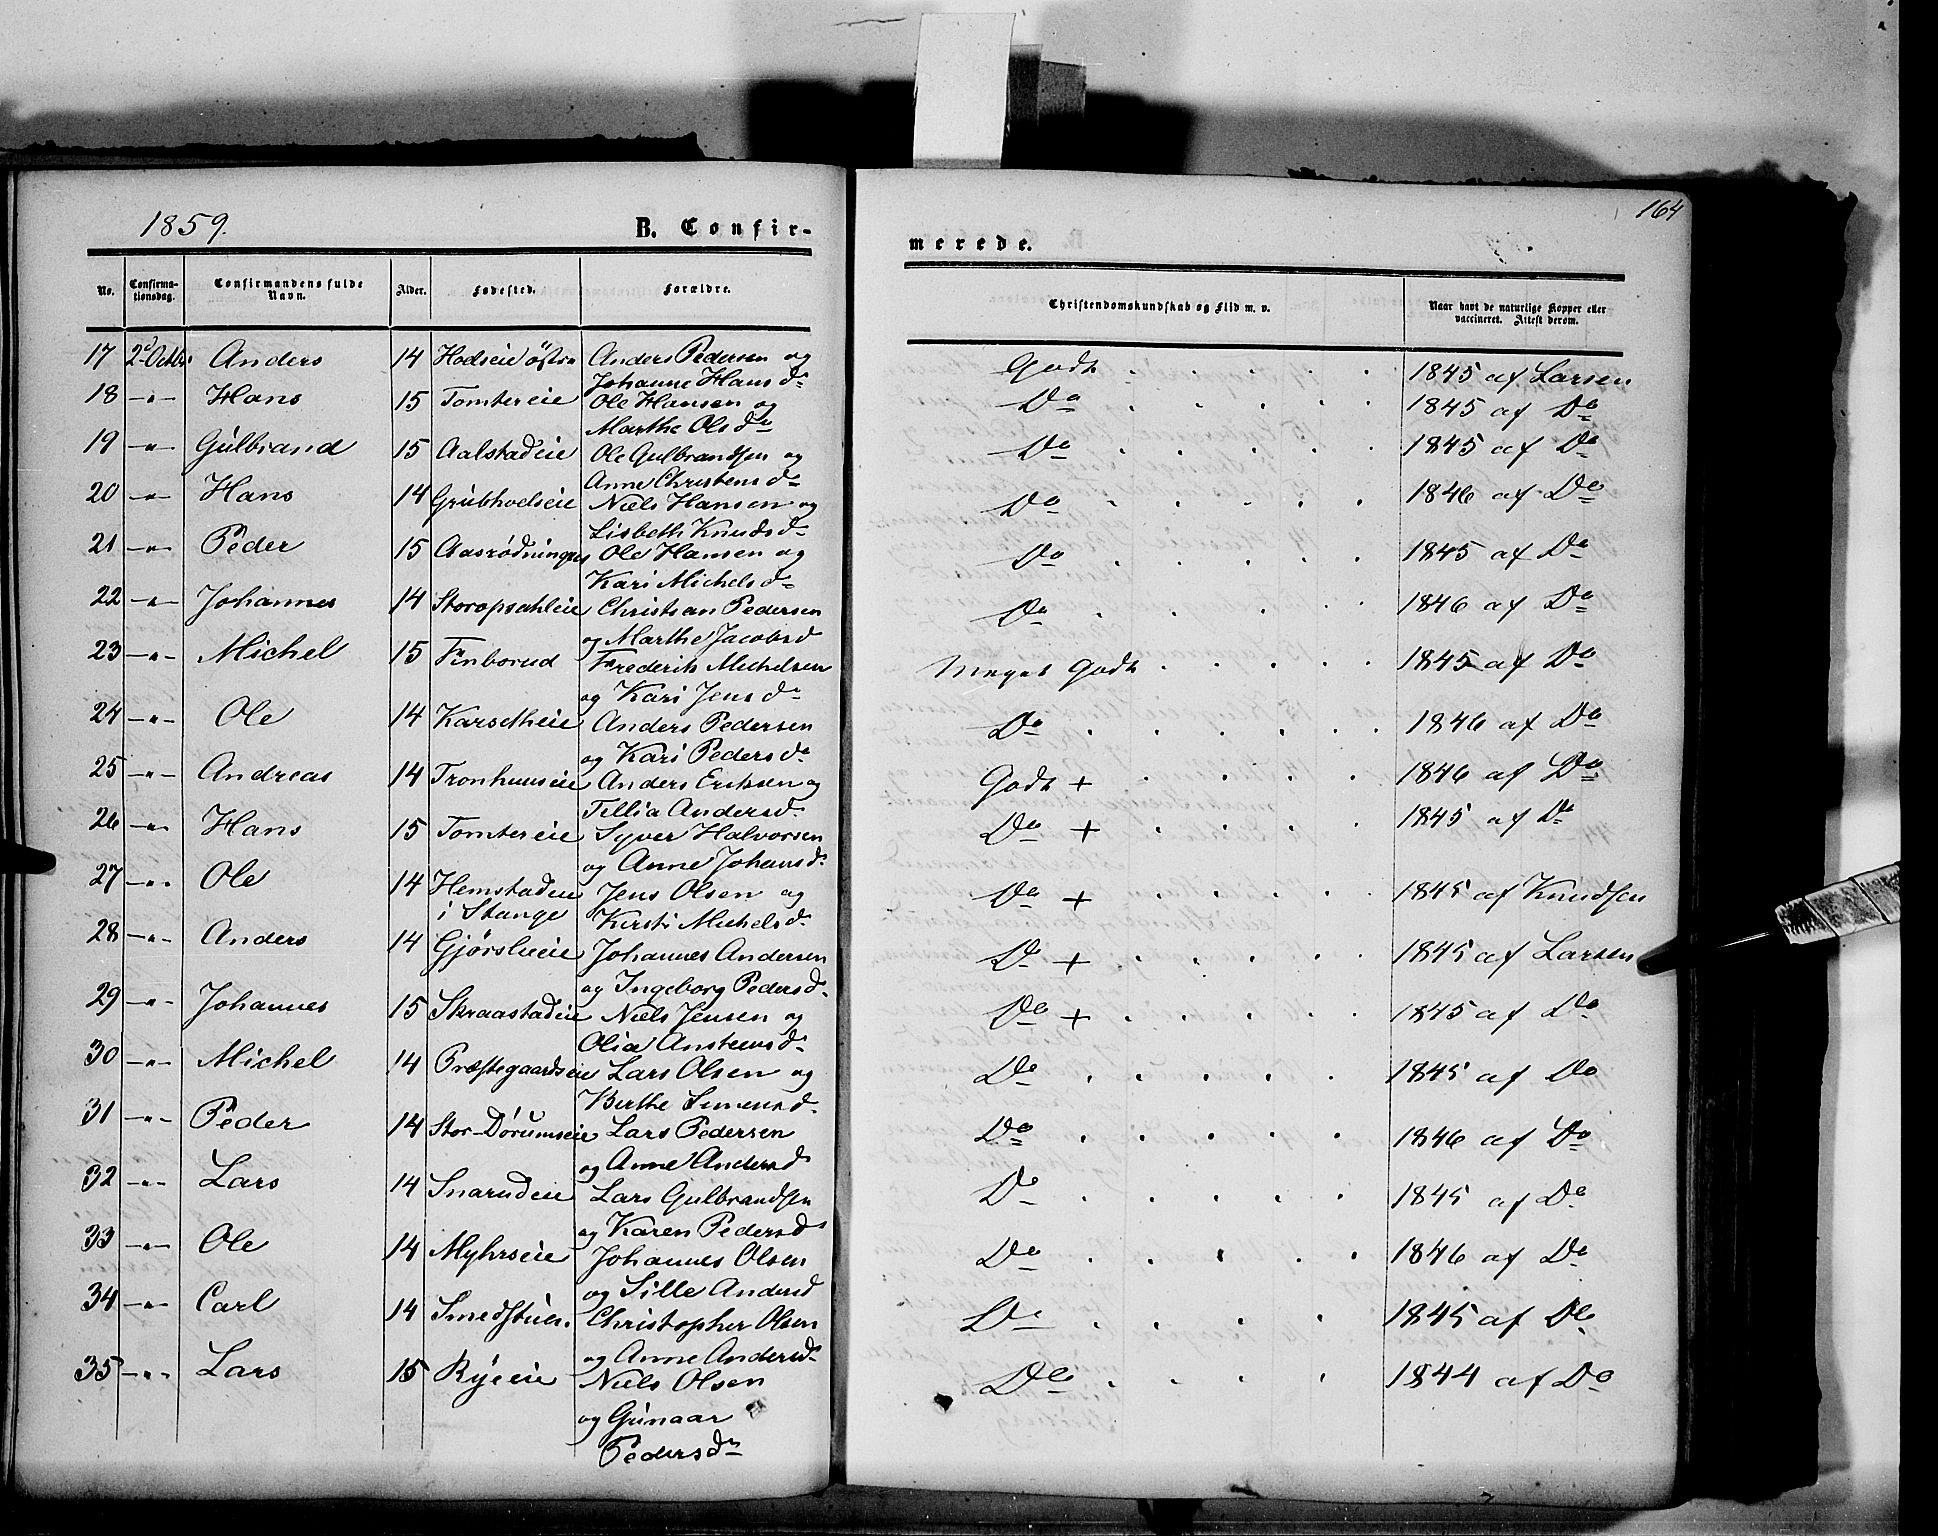 1859.
B. Confir-
merede.
164
No. Confirma-tionsdag. Confirmandens fulde Navn. Alder. Fødested. Forældre. Christendomskundskab og Flid m. v. Naar havt de naturlige Kopper eller vaccineret. Attest derom.
17 2d Octbr Anders 14 Hodseie østre Anders Pedersen og Johanne Hansd. Godt 1845 af Larsen
18 -"- Hans 15 Tomtereie Ole Hansen og Marthe Olsd. Do 1845 af Do
19 -"- Gulbrand 15 Aalstadeie Ole Gulbrandsen og Anne Christensd. Do 1845 af Do
20 -"- Hans 14 Grubhodseie Niels Hansen og Lisbeth Knudsd. Do 1846 af Do
21 -"- Peder 15 Aasrødningen Ole Hansen og Kari Michelsd. Do 1845 af Do
22 -"- Johannes 14 Storopsahleie Christian Pedersen og Marthe Jacobsd. Do 1846 af Do
23 -"- Michel 15 Finborud Frederik Michelsen og Kari Jensd. Meget Godt 1845 af Do
24 -"- Ole 14 Karsetheie Anders Pedersen og Kari Pedersd. Do 1846 af Do
25 -"- Andreas 14 Tronhuuseie Anders Eriksen og Tellia Andersd. Godt + 1846 af Do
26 -"- Hans 15 Tomtereie Syver Halvorsen og Anne Johansd. Do + 1845 af Do
27 -"- Ole 14 Hemstadeie i Stange Jens Olsen og Kirsti Michelsd. Do + 1845 af Knudsen
28 -"- Anders 14 Gjørslieie Johannes Andersen og Ingeborg Pedersd. Do + 1845 af Larsen
29 -"- Johannes 15 Skraastadeie Niels Jensen og Olia Anstensd. Do + 1845 af Do
30 -"- Michel 14 Præstegaardseie Lars Olsen og Berthe Simensd. Do 1845 af Do
31 -"- Peder 14 Stor-Dørumseie Lars Pedersen og Anne Andersd. Do 1846 af Do
32 -"- Lars 14 Snarudeie Lars Gulbrandsen og Karen Pedersd. Do 1845 af Do
33 -"- Ole 14 Myhrseie Johannes Olsen og Sille Andersd. Do 1846 af Do
34 -"- Carl 14 Smedstuen. Christopher Olsen og Anne Andersd. Do 1845 af Do
35 -"- Lars 15 Ryeeie Niels Olsen og Gunaar Pedersd. Do 1844 af Do